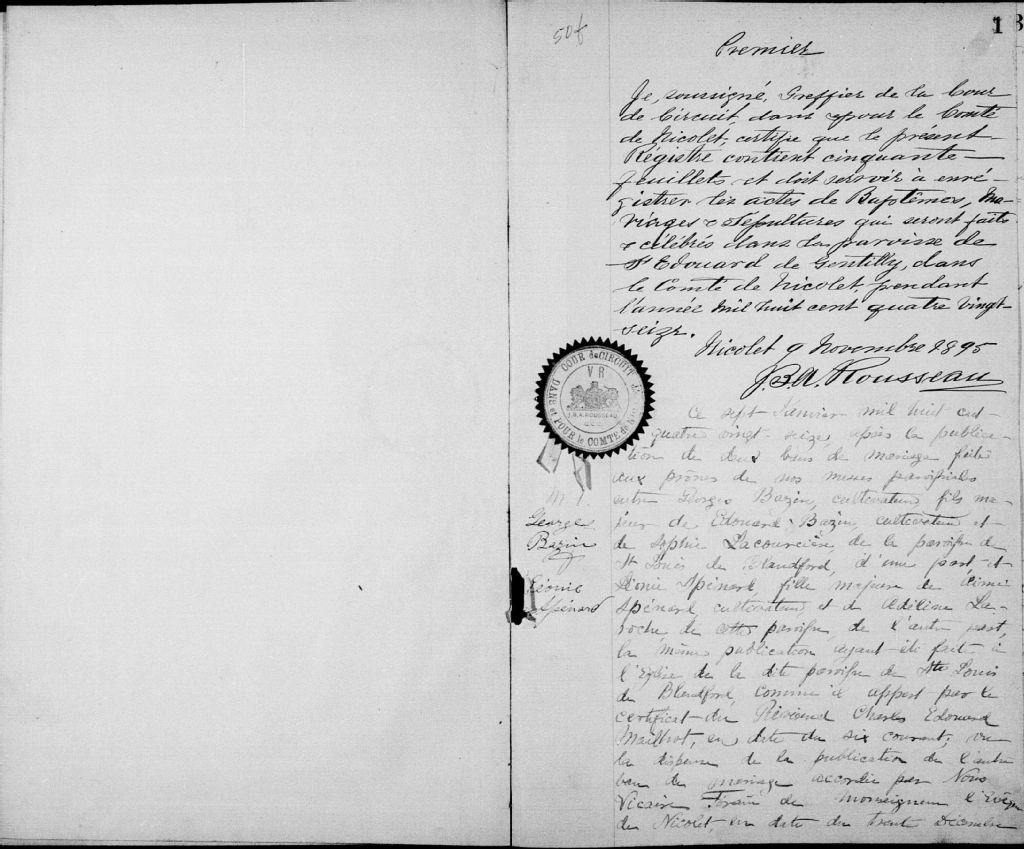 50f
1
Premier
Je, soussigné, Greffier de la Cour
de Circuit, dans & pour le Comté
de Nicolet, certifie que le présent
Régistre contient cinquante
feuillets et doit servoir à enré-
gistrer les actes de Baptêmes, Ma-
riages & Sépultures qui seront faits
& célébrés dans la paroisse de
St Edouard de Gentilly, dans
le Comté de Nicolet, pendant
l'année mil huit cent quatre vingt-
seize.
Nicolet 9 Novembre 1895
J.B.A. Rousseau
COUR de CIRCUIT
DANS et POUR le COMTE de
V R
J.B.A. ROUSSEAU
C.C.C.
M. 1.
Georges
Bazin
&
Léonie
Spénard
Ce sept Janvier mil huit cent-
quatre vingt-seize, après la publica-
tion de deux bans de mariage faite
aux prônes de nos messes paroissiales
entre Georges Bazin, cultivateur fils ma-
jeur de Edouard Bazin, cultivateur et
de Sophie Lacourcière, de la paroisse de
St Louis de Blandford, d'une part et
Léonie Spénard, fille majeure de
Spénard, cultivateur et de Adéline La-
roche, de cette paroisse, de l'autre part,
la même publication ayant été fait à
l'Eglise de la dite paroisse de St Louis
de Blandford, comme il appert par le
certificat du Révérend Charles Edouard
Mailhot, en date du six courant; vu
la dispense de la publication de l'autre
ban de mariage accordée par Nous
Vicaire Forain de Monseigneur l'Evêque
de Nicolet, en date du trente Décembre